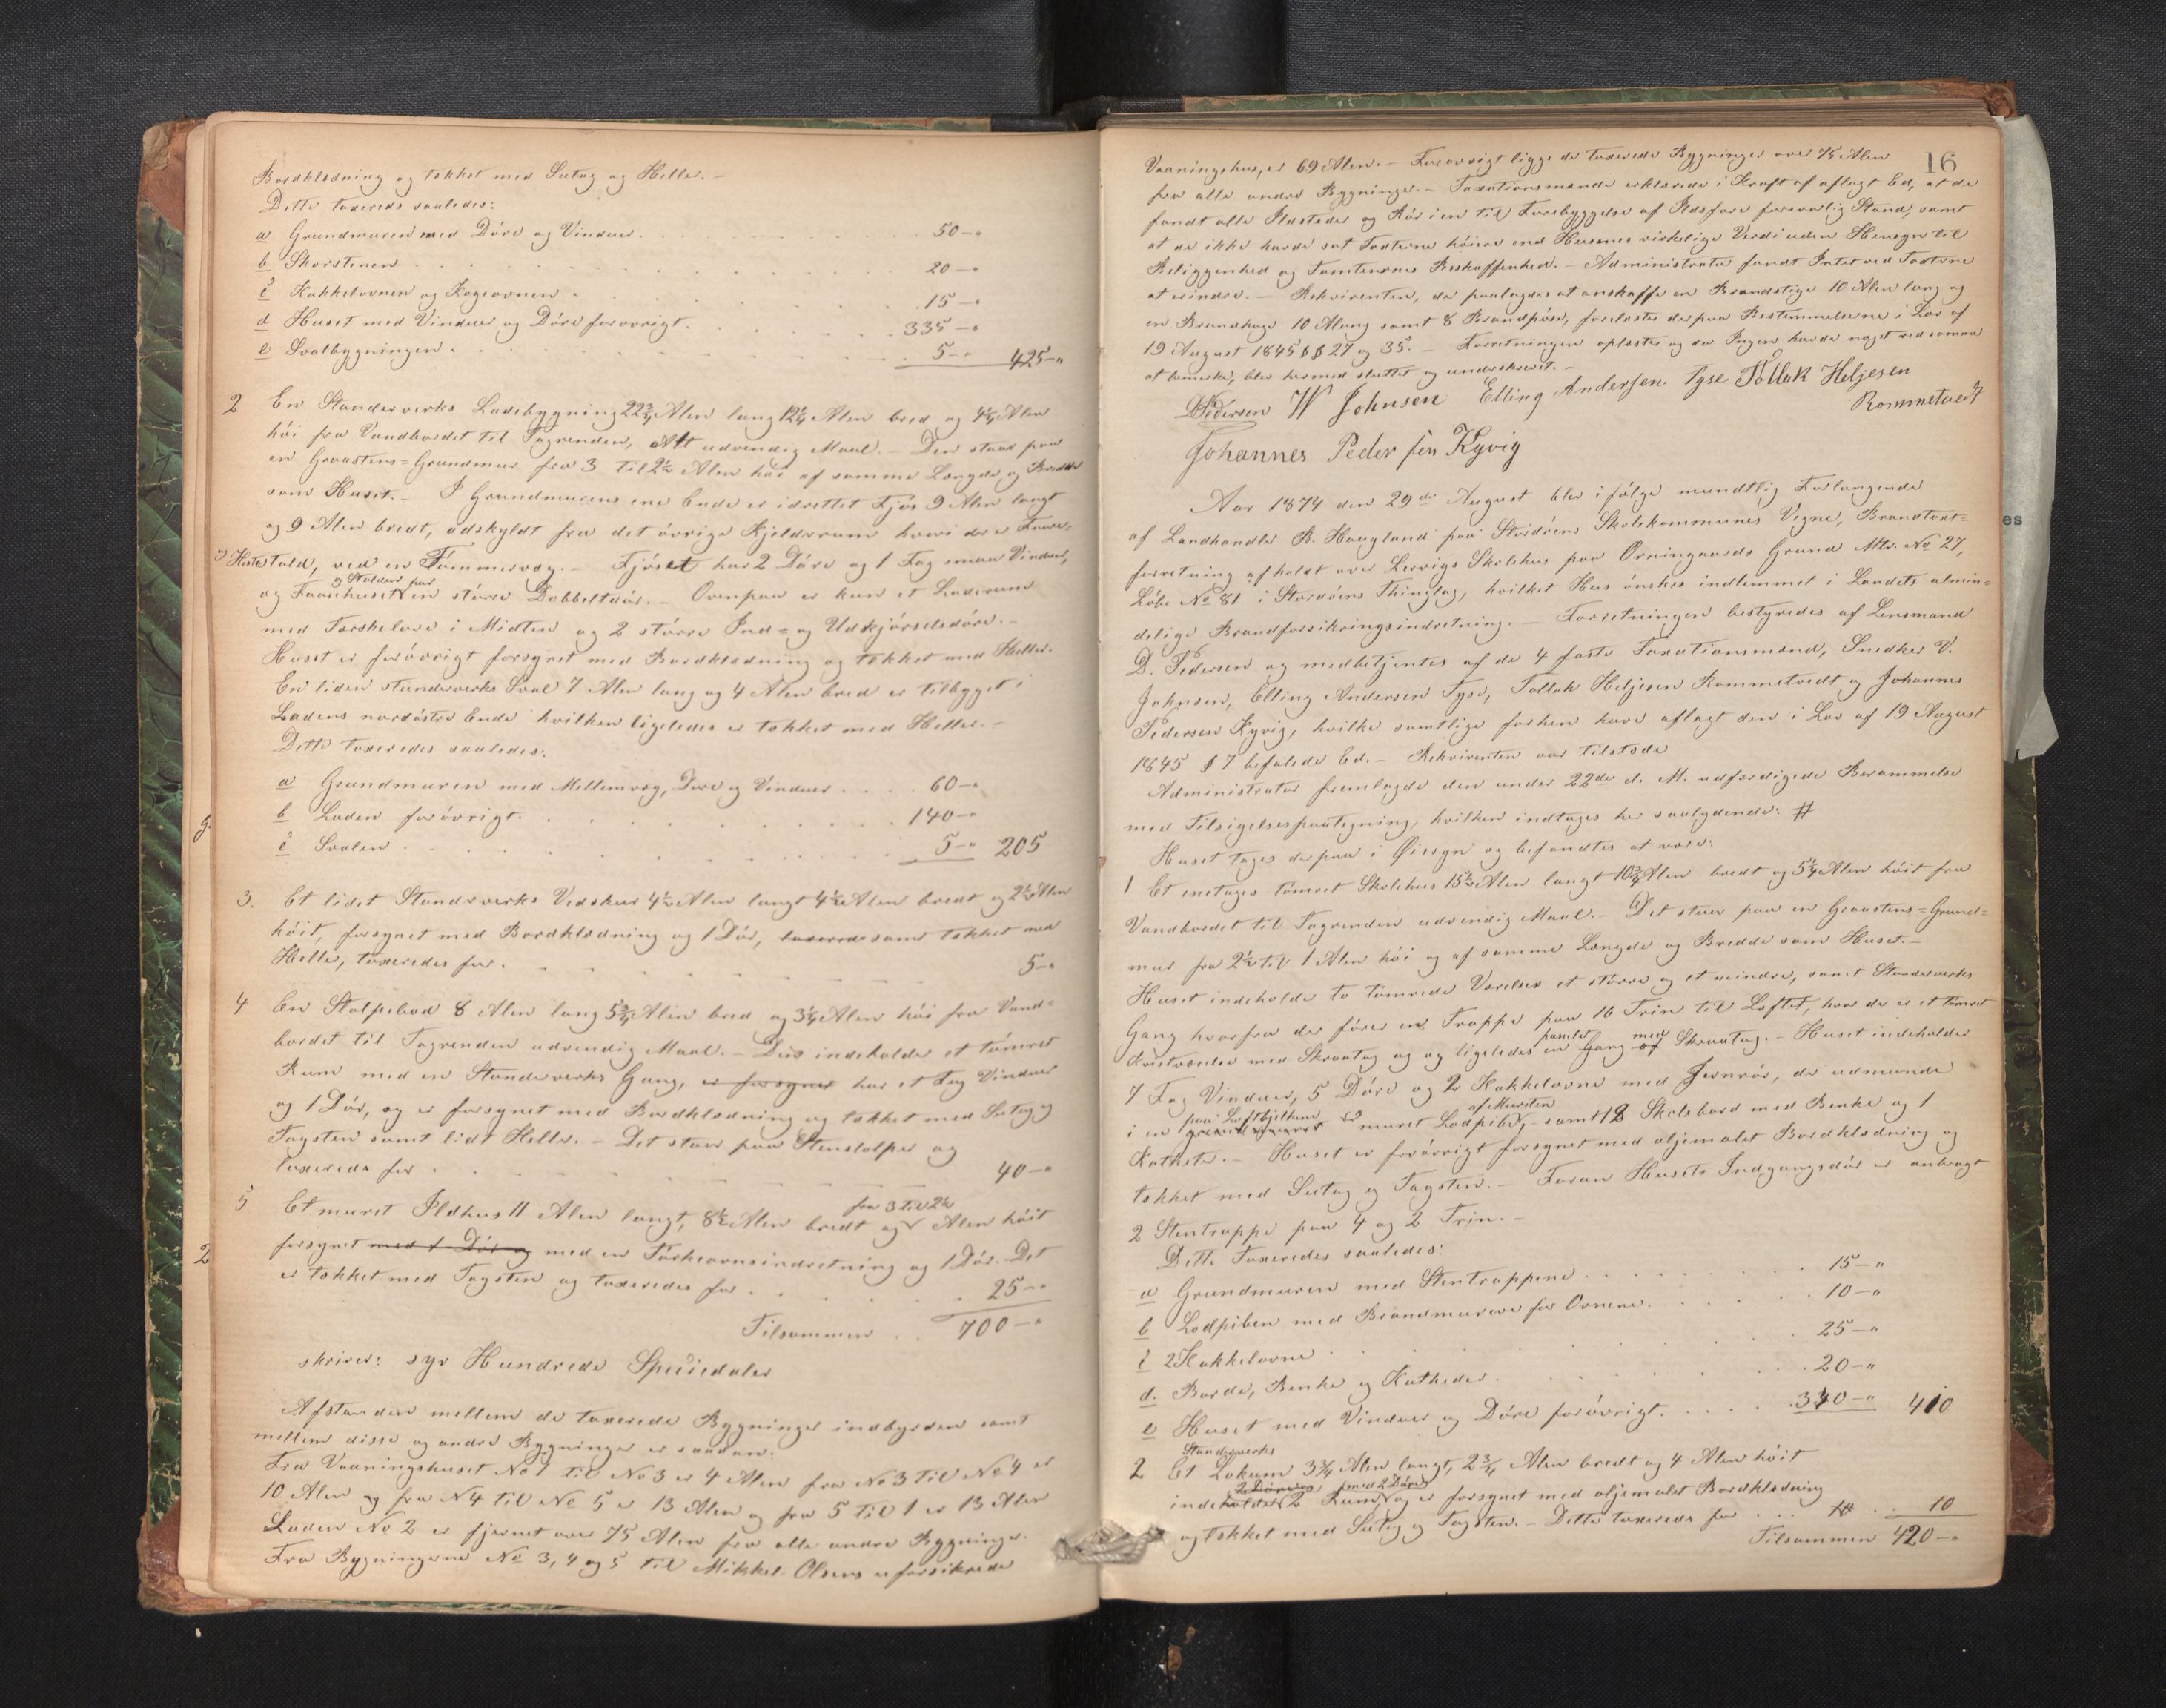 Bordklædning og tækket med Sutag og Heller. –
Dette taxeredes saaledes:
a Grundmuren med Döre og Vinduer . . . 50 – "
b Skorstenen . . . 20 – "
c Kakkelovnen og Kogeovnen . . . 15 – "
d Huset med Vinduer og Döre forövrigt . . . 335 – "
e Svalbygningen . . . 5 – " 425 – "
2 En Standerverks Ladebygning 22 3/4 Alen lang 12 1/4 Alen bred og 4 1/4 Alen
höi fra Vandbordet til Tagrenden, Alt udvendig Maal. – Den staar paa
en Graastens=Grundmur fra 3 til 2 1/2 Alen höi af samme Længde og Bredde
som Huset. – I Grundmurens ene Ende er idrettet Fjös 9 Alen langt
og 9 Alen bredt, adskyldt fra det övrige Kjelderrum hvori der er Faare=
og Hestestald, ved en Tömmervæg. – Fjöset har 2 Döre og 1 Fag smaa Vinduer,
og Faarehuset og Stalden har en större Dobbeltdör. – Ovenpaa er kun et Laderum
med Tærskelove i Midten og 2 större Ind= og Udkjörselsdöre. –
Huset er forövrigt forsynet med Bordklædning og tækket med Heller.
En liden standerverks Sval 7 Alen lang og 4 Alen bred er tilbygget i
Ladens nordöstre Ende hvilken ligeledes er tækket med Heller. –
Dette taxeredes saaledes:
a Grundmuren med Mellemvæg, Döre og Vinduer . . . 60 – "
b Laden forövrigt . . . 140 – "
c Svalen . . . 5 – " 205
3. Et lidet Standerverks Vedskur 4 1/2 Alen langt 4 1/2 Alen bredt og 2 1/2 Alen
höit, forsynet med Bordklædning og 1 Dör, taxeredes samt tækket med
Heller, taxeredes for . . . 5 – "
4 En Stolpebod 8 Alen lang 5 3/4 Alen bred og 3 1/4 Alen höi fra Vand=
bordet til Tagrenden udvendig Maal. – Den indeholder et tömret
Rum med en Standerverks Gang, er forsynet har et Fag Vinduer
og 1 Dör, og er forsynet med Bordklædning og tækket med Sutag og
Tagsten samt lidt Heller. – Det staar paa Stenstolper og
taxeredes for . . . 40 – "
5 Et muret Ildhus 11 Alen langt, 8 1/2 Alen bredt og fra 3 til 2 1/2 Alen höit
forsynet med 1 Dör og med en Törkeovnsindretning og 1 Dör. Det
er tækket med Tagsten og taxeredes for . . . 25 – "
Tilsammen . . 700 – "
skriver: syv Hundrede Speciedaler
Afstanden mellem de taxerede Bygninger indbyrdes samt
mellem disse og andre Bygninger er saadan:
Fra Vaaningshuset No 1 til No 3 er 4 Alen fra No 3 til No 4 er
10 Alen og fra N 4 til No 5 er 13 Alen og fra 5 til 1 er 13 Alen
Laden No 2 er fjernet over 75 Alen fra alle andre Bygninger.
Fra Bygningerne No 3, 4 og 5 til Mikkel Olsens uforsikrede
16
Vaaningshus, er 69 Alen. – Forövrigt ligge de taxerede Bygninger over 75 Alen
fra alle andre Bygninger. – Taxationsmændene erklærede i Kraft af aflagt Ed, at de
fandt alle Ildsteder og Rör i en til Forebyggelse af Ildsfare forsvarlig Stand, samt
at de ikke havde sat Taxterne höiere end Husenes virkelige Værdi uden Hensyn til
Beliggenhed og Tomternes Beskaffenhed. – Administrator fandt Intet ved Taxterne
at erindre. – Rekvirenten, der paalagdes at anskaffe en Brandstige 10 Alen lang og
en Brandhage 10 Alen lang samt 8 Brandpöse, forelæstes derpaa Bestemmelserne i Lov af
19 August 1845 §§ 27 og 35. – Forretningen oplæstes og da Ingen havde noget ved samme
at bemerke, blev hermed sluttet og underskrevet. –
D Pedersen W Johnsen Elling Andersen Tyse Tollak Heljesen
Rommetvedt
Johannes Pedersen Kyvig
Aar 1874 den 29de August blev ifölge mundtlig Forlangende
af Landhandler B. Haugland paa Stordöens Skolekommunes Vegne, Brandtaxt=
forretning afholdt over Lervigs Skolehus paa Orningaards Grund Mtr. No 27,
Löbe No 81 i Stordöens Thinglag, hvilket Hus önskes indlemmet i Landets almin=
delige Brandforsikringsindretning. – Forretningen bestyredes af Lensmand
D. Pedersen og medbetjentes af de 4 faste Taxationsmænd, Snedker V.
Johnsen, Elling Andersen Tyse, Tollak Heljesen Rommetvedt og Johannes
Pedersen Kyvig, hvilke samtlige forhen have aflagt den i Lov af 19 August
1845 § 7 befalede Ed. – Rekvirenten var tilstede
Administrator fremlagde den under 22de d. M. udfærdigede Berammelse
med Tilsigelsespaategning, hvilken indtages her saalydende: #
Huset toges derpaa i Øiesyn og befandtes at være:
1 Et enetages tömret Skolehus 15 1/2 Alen langt 10 3/4 Alen bredt og 5 1/4 Alen höit fra
Vandbordet til Tagrenden udvendig Maal. – Det staar paa en Graastens=Grund=
mur fra 2 1/2 til 1 Alen höi og af samme Længde og Bredde som Huset. –
Huset indeholder to tömrede Værelser et större og et mindre, samt Standerverks
Gang hvorfra der förer en Trappe paa 16 Trin til Loftet, hvor der er et tömret
Kvistværelse med Skraatag og og ligeledes en panelet Gang med af Skraatag. – Huset indeholder
7 Fag Vinduer, 5 Döre og 2 Kakkelovne med Jernrör, der udmunde
i en paa Loftbjelkerne muret Lodpibe af Mursten, – samt 12 Skolebord med Benke og 1
Kathete. – Huset er forövrigt forsynet med oljemalet Bordklædning og
tækket med Sutag og Tagsten. – Foran Husets Indgangsdör er anbragt
2 Stentrappe paa 4 og 2 Trin. –
Dette Taxeredes saaledes:
a Grundmuren med Stentrappene . . . 15 – "
b Lodpiben med Brandmurene for Ovnene . . . 10 – "
c 2 Kakkelovne . . . 25 – "
d. Borde, Benke og Katheder . . . 20 – "
e Huset med Vinduer og Döre forövrigt . . . 340 – " 410
2 Et Standerverks Lokum 3 3/4 Alen langt, 2 3/4 Alen bredt og 4 Alen höit
indeholder 2 Rum, med 2 Döre og er forsynet med oljemalet Bordklædning
og tækket med Sutag og Tagsten. – Dette taxeredes for . . . 10
Tilsammen 420 – "